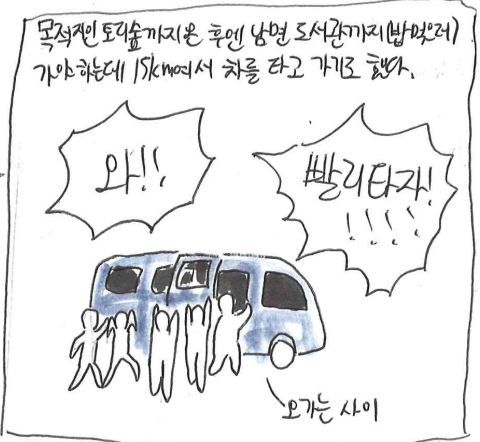 목적지인 토리숲까지 온 후엔 남면 도서관까지(밥먹으러)
가야 하는데 15km여서 차를 타고 가기로 했다.
와!!
빨리타자!
!!!!!
오가는 사이